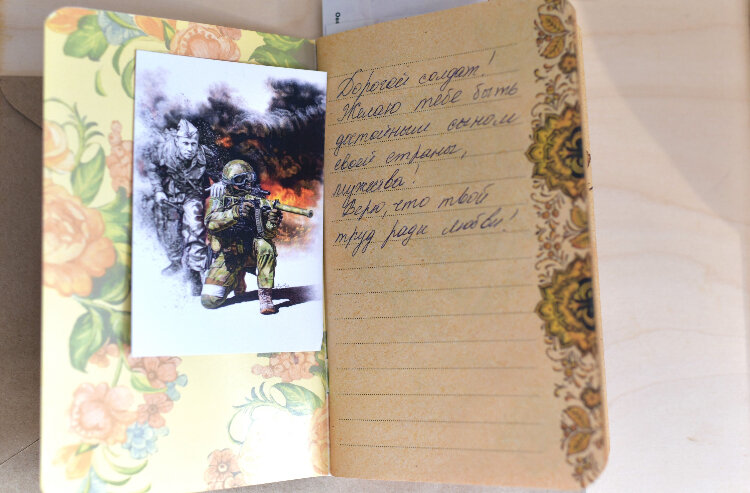 Дорогой солдат!
Желаю тебе быть
достойным сыном
своей страны,
мужества!
Верю, что твой
труд ради любви!